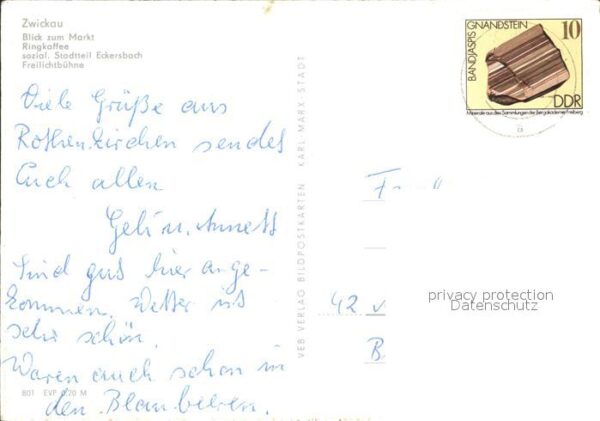 Zwickau
Blick zum Markt
Ringkaffee
sozial. Stadtteil Eckersbach
Freilichtbühne
Viele Grüße aus
Rothenkirchen sendet
Euch allen
Geli u. Annett
Sind gut hier ange-
kommen. Wetter ist
sehr schön.
Waren auch schon in
den Blaubeeren.
801 EVP 0,20 M
VEB VERLAG BILDPOSTKARTEN KARL-MARX-STADT
BANDJASPIS GNANDSTEIN
10
DDR
Minerale aus den Sammlungen der Bergakademie Freiberg
a
F
42
B
privacy protection
Datenschutz